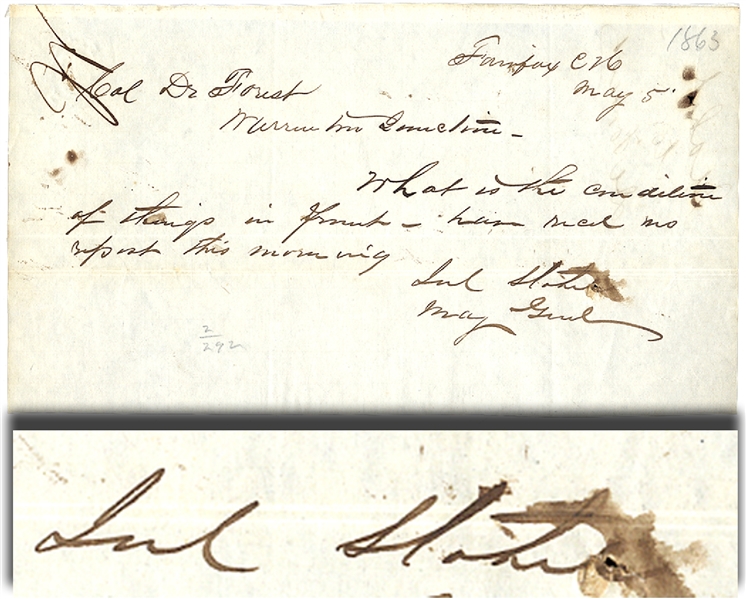 1863
Fairfax C H
May 5
Col De Forest
Warrenton Junction -
What is the condition
of things in front - have recd no
report this morning
Jul Stahel
Maj Genl
2
292
Jul Stahel